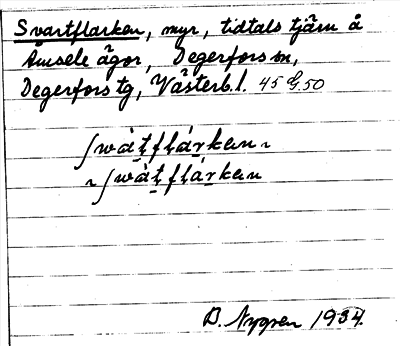 Svartflarken, myr, tidtals tjärn å
Åmsele ägor, Degerfors sn,
Degerfors tg, Västerb. l. 45 G. 50
ʃwàt̲flár̲ken ~
~ ʃwàt̲flár̲ken
B. Nygren 1934.